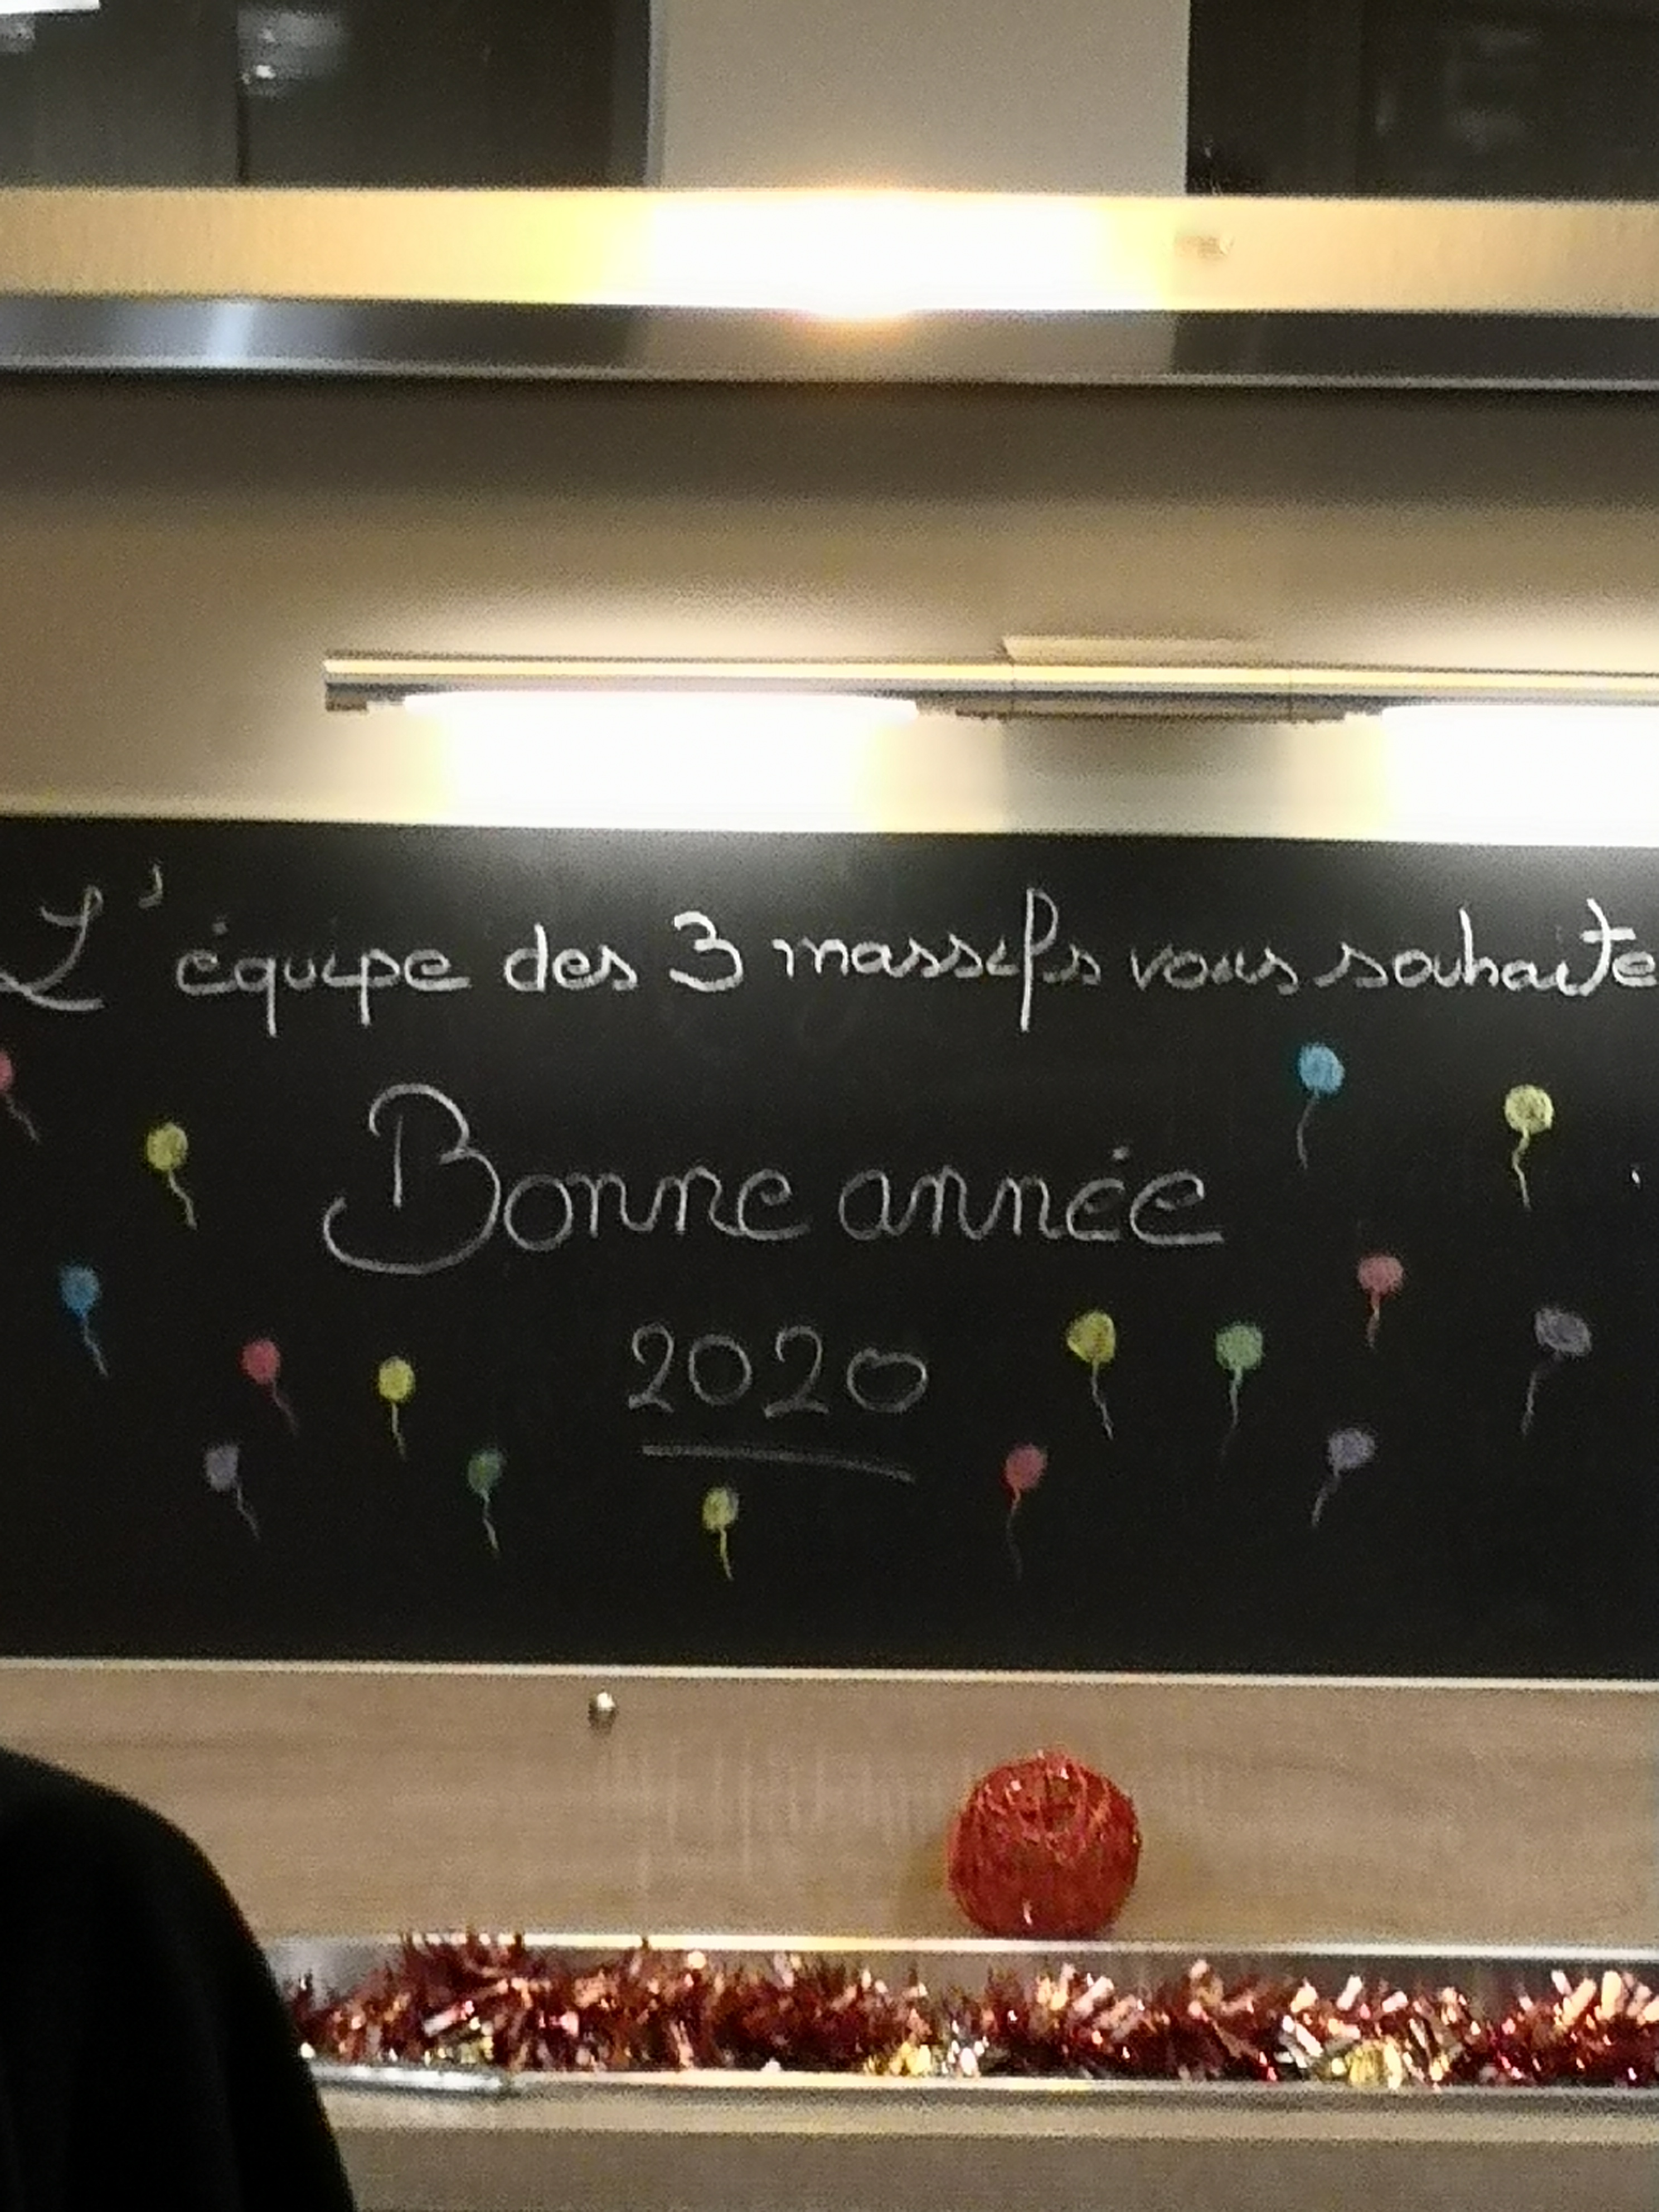 L'équipe des 3 massifs vous souhaite
Bonne année
2020